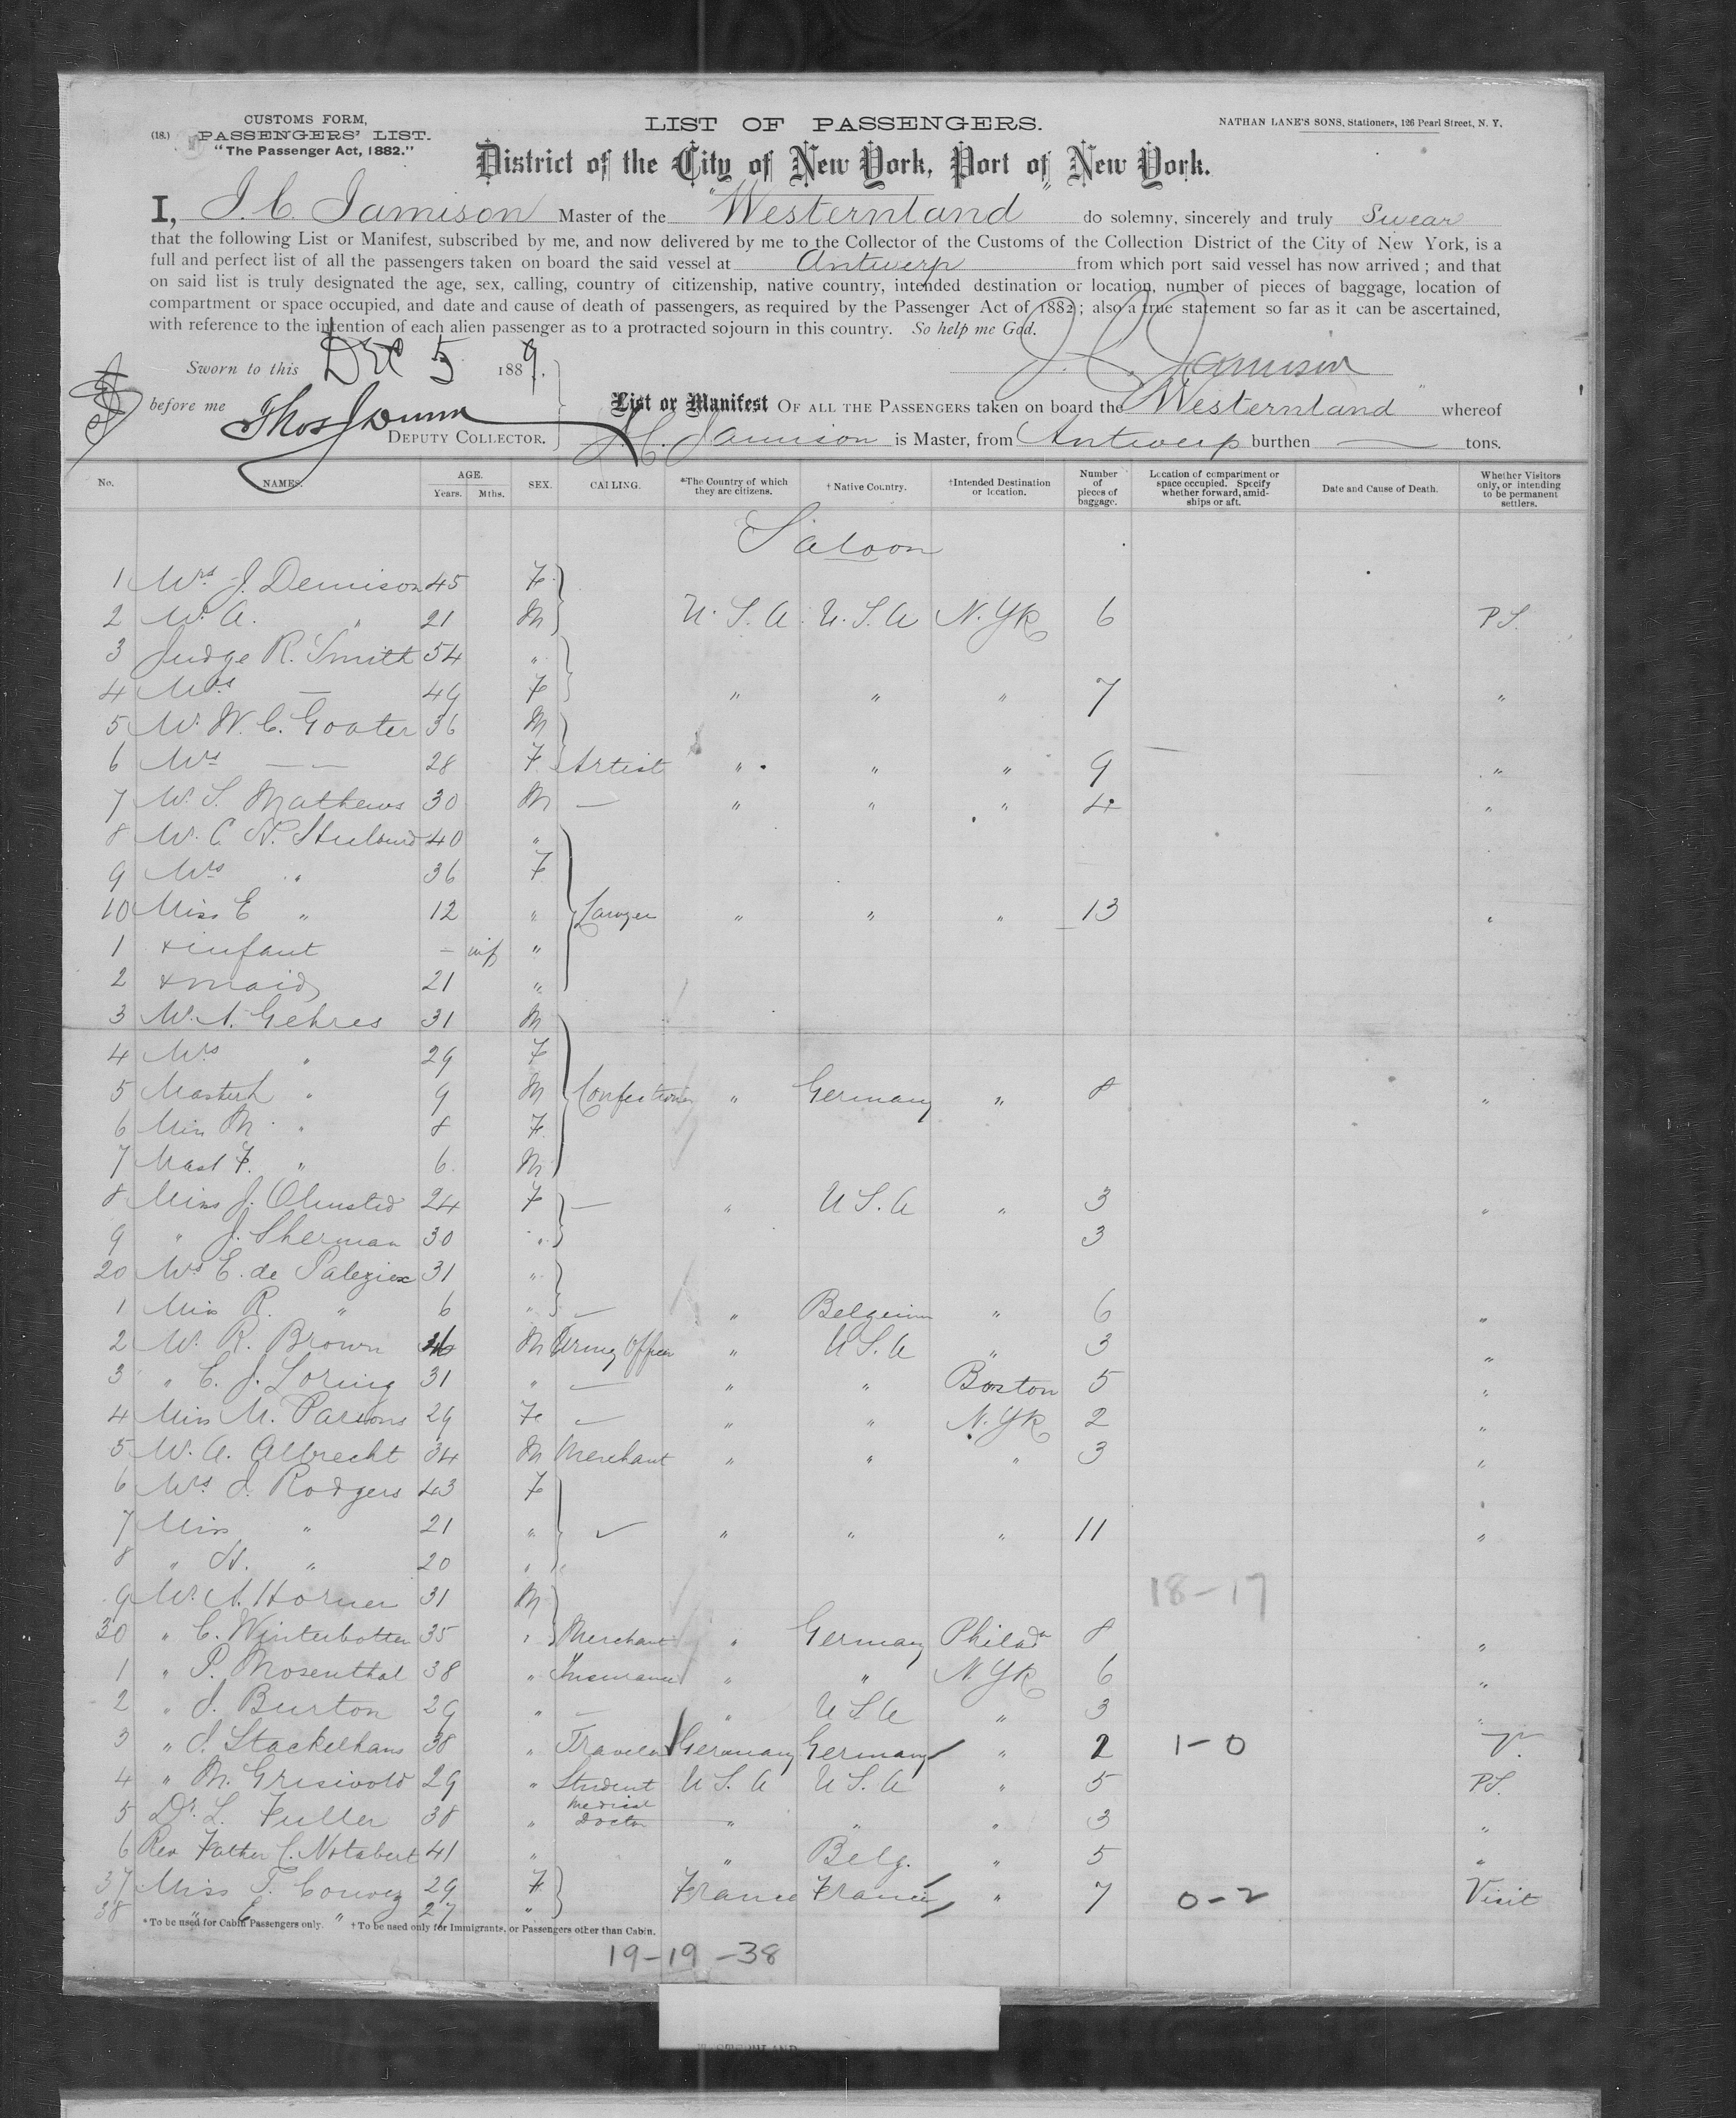 CUSTOMS FORM,
(18.) PASSENGERS' LIST.
"The Passenger Act, 1882."
LIST OF PASSENGERS.
NATHAN LANE'S SONS, Stationers, 126 Pearl Street, N. Y.
District of the City of New York, Port of New York.
I, J. C. Jamison Master of the "Westernland" do solemny, sincerely and truly Swear
that the following List or Manifest, subscribed by me, and now delivered by me to the Collector of the Customs of the Collection District of the City of New York, is a
full and perfect list of all the passengers taken on board the said vessel at Antwerp from which port said vessel has now arrived; and that
on said list is truly designated the age, sex, calling, country of citizenship, native country, intended destination or location, number of pieces of baggage, location of
compartment or space occupied, and date and cause of death of passengers, as required by the Passenger Act of 1882; also a true statement so far as it can be ascertained,
with reference to the intention of each alien passenger as to a protracted sojourn in this country. So help me God.
Sworn to this Dec 5 1889.
J. C. Jamison
before me Thos J Dunn
DEPUTY COLLECTOR.
List or Manifest OF ALL THE PASSENGERS taken on board the Westernland whereof
J. C. Jamison is Master, from Antwerp burthen — tons.
No. NAMES. AGE. Years. Mths. SEX. CALLING. *The Country of which they are citizens. † Native Country. †Intended Destination or location. Number of pieces of baggage. Location of compartment or space occupied. Specify whether forward, amidships or aft. Date and Cause of Death. Whether Visitors only, or intending to be permanent settlers.
Saloon
1 Mrs J. Dennison 45 F
2 Mr. A. " 21 M U.S.A. U.S.A N.Yk 6 P.S.
3 Judge R. Smith 54 "
4 Mrs — 49 F " " " 7 "
5 Mr. W. C. Goater 36 M
6 Mrs — — 28 F Artist " " " 9 "
7 Mr. S. Mathews 30 M — " " " 4 "
8 Mr. C. 40 "
9 Mrs " 36 F
10 Miss E " 12 " Lawyer " " " 13 "
1 & infant — inf "
2 & maid 21 "
3 Mr. A. Gehres 31 M
4 Mrs " 29 F
5 Master " 9 M Confectioner " Germany " 8 "
6 Miss M. " 8 F
7 Mast F. " 6 M
8 Miss J. Olmsted 24 F — " U.S.A " 3 "
9 " J. Sherman 30 " 3
20 Mrs E. de Palezieux 31 "
1 Miss R. " 6 " — " Belgium " 6 "
2 Mr. R. Brown M Army Officer " U.S.A " 3 "
3 " C. J. Loring 31 " — " " Boston 5 "
4 Miss M. Parsons 29 F — " " N.Yk 2 "
5 Mr. A. Albrecht 34 M Merchant " " " 3 "
6 Mrs. J. Rodgers 43 F
7 Miss " 21 " " " " 11 "
8 " H. " 20 "
18-17
9 Mr. A. Horner 31 M
30 " C. Winterbotten 35 " Merchant " Germany Philada 8 "
1 " P. Mosenthal 38 " Insurance " " N.Yk 6 "
2 " J. Burton 29 " — " U.S.A " 3 "
3 " J. Stackelhaus 38 " Traveler Germany Germany " 2 1-0 V.
4 " M. Griswold 29 " Student U.S.A U.S.A " 5 P.S.
5 Dr. L. Fuller 38 " Medical Doctor " " " 3 "
6 Rev Father C. Notabert 41 " " Belg. " 5 "
37 Miss T. Couvez 29 F France France " 7 0-2 Visit
38 " E " 27 "
*To be used for Cabin Passengers only. †To be used only for Immigrants, or Passengers other than Cabin.
19-19-38